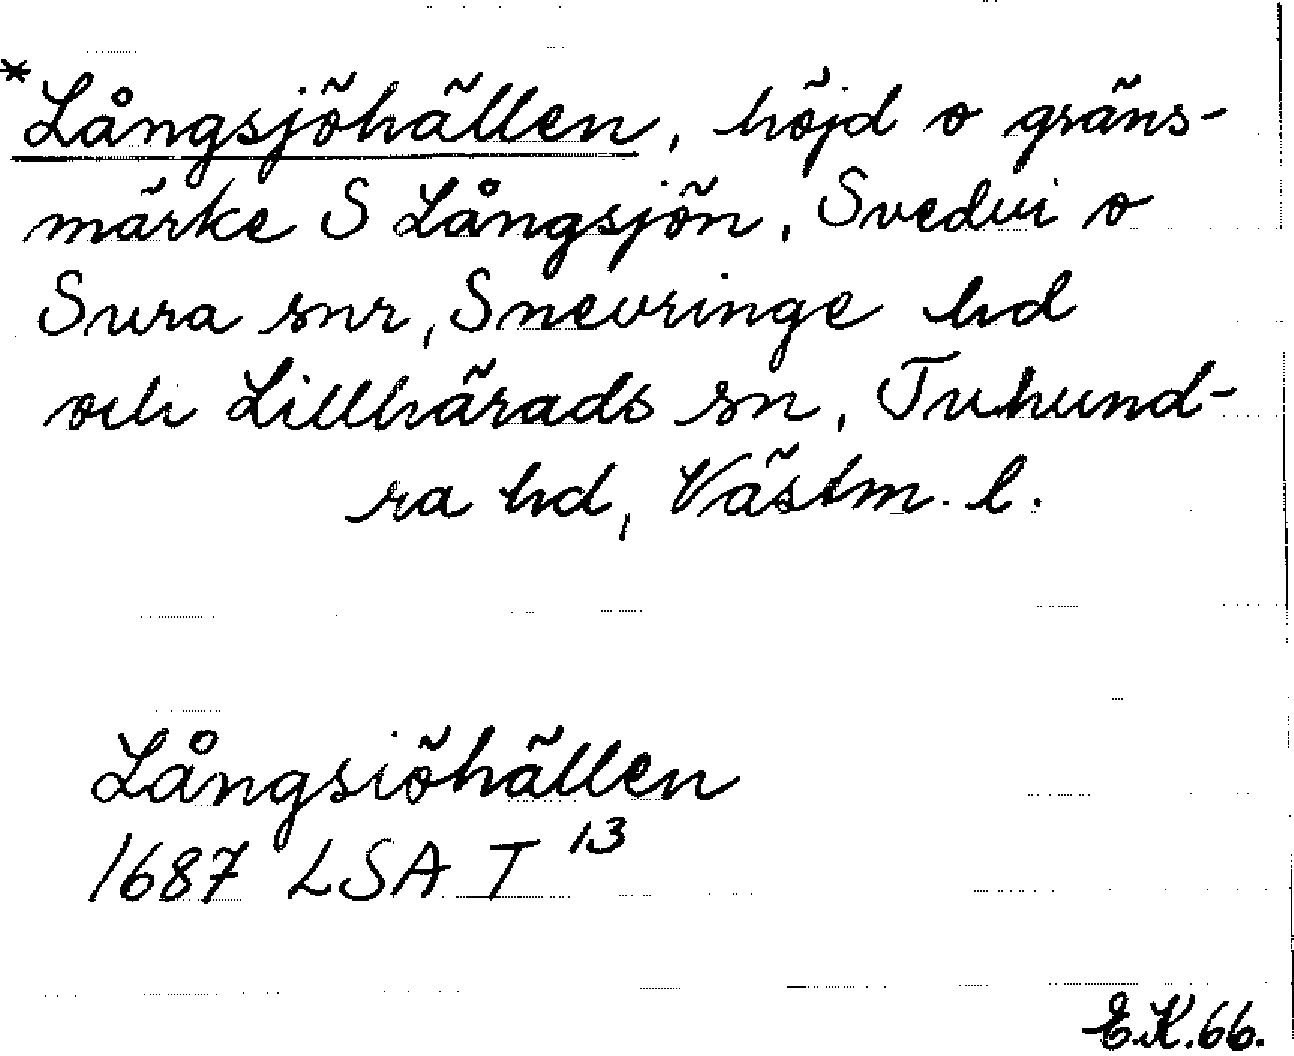 *Långsjöhällen, höjd o gräns-
märke S Långsjön, Svedvi o
Sura snr, Snevringe hd
och Lillhärads sn, Tuhund-
ra hd, Västm. l.
Långsiöhällen
1687 LSA T 13
E.K.66.